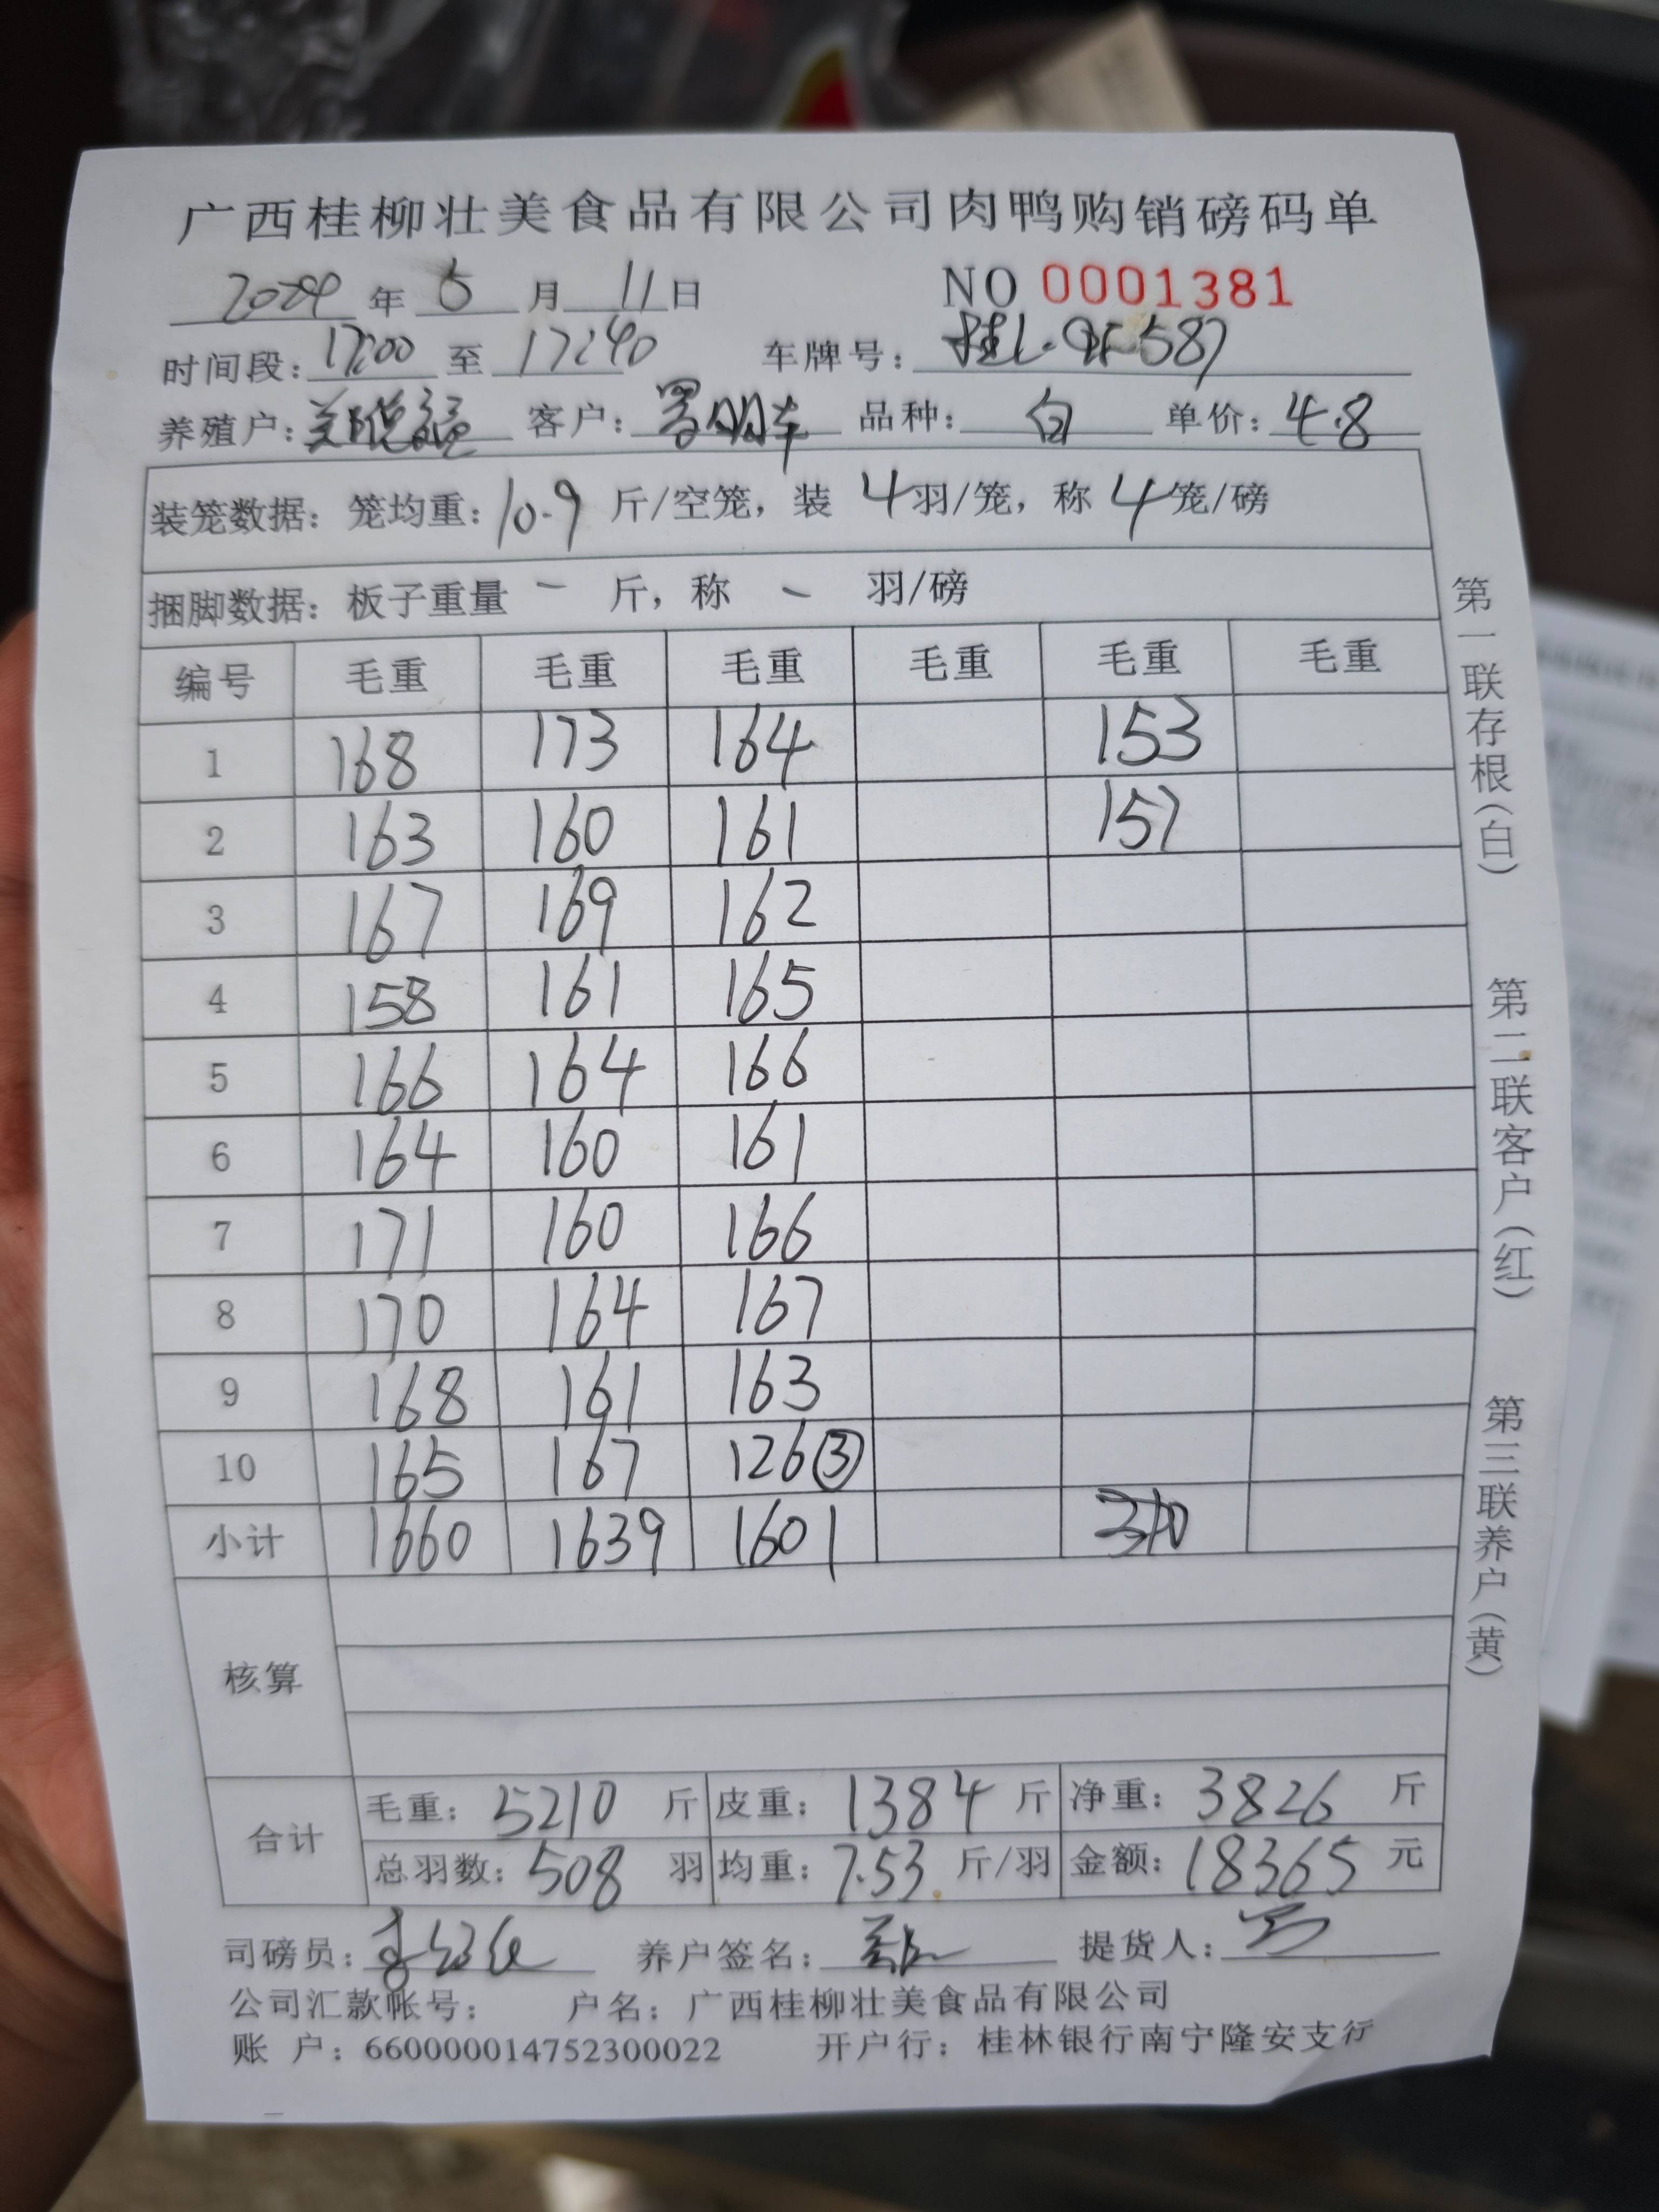 广西桂柳壮美食品有限公司肉鸭购销磅码单
2024年 5 月 11日 NO 0001381
时间段：17:00 至 17:40 车牌号：桂L·
养殖户： 客户： 品种：白 单价：4.8
装笼数据：笼均重：10.9 斤/空笼，装 4 羽/笼，称 4 笼/磅
捆脚数据：板子重量 — 斤，称 — 羽/磅
编号 毛重 毛重 毛重 毛重 毛重 毛重
1 168 173 164 153
2 163 160 161 157
3 167 169 162
4 158 161 165
5 166 164 166
6 164 160 161
7 171 160 166
8 170 164 167
9 168 161 163
10 165 167 126③
小计 1660 1639 1601 310
核算
合计 毛重：5210 斤 皮重：1384 斤 净重：3826 斤
总羽数：508 羽 均重：7.53 斤/羽 金额：18365 元
司磅员： 养户签名： 提货人：
公司汇款帐号： 户名：广西桂柳壮美食品有限公司
账 户：660000014752300022 开户行：桂林银行南宁隆安支行
第一联存根（白） 第二联客户（红） 第三联养户（黄）